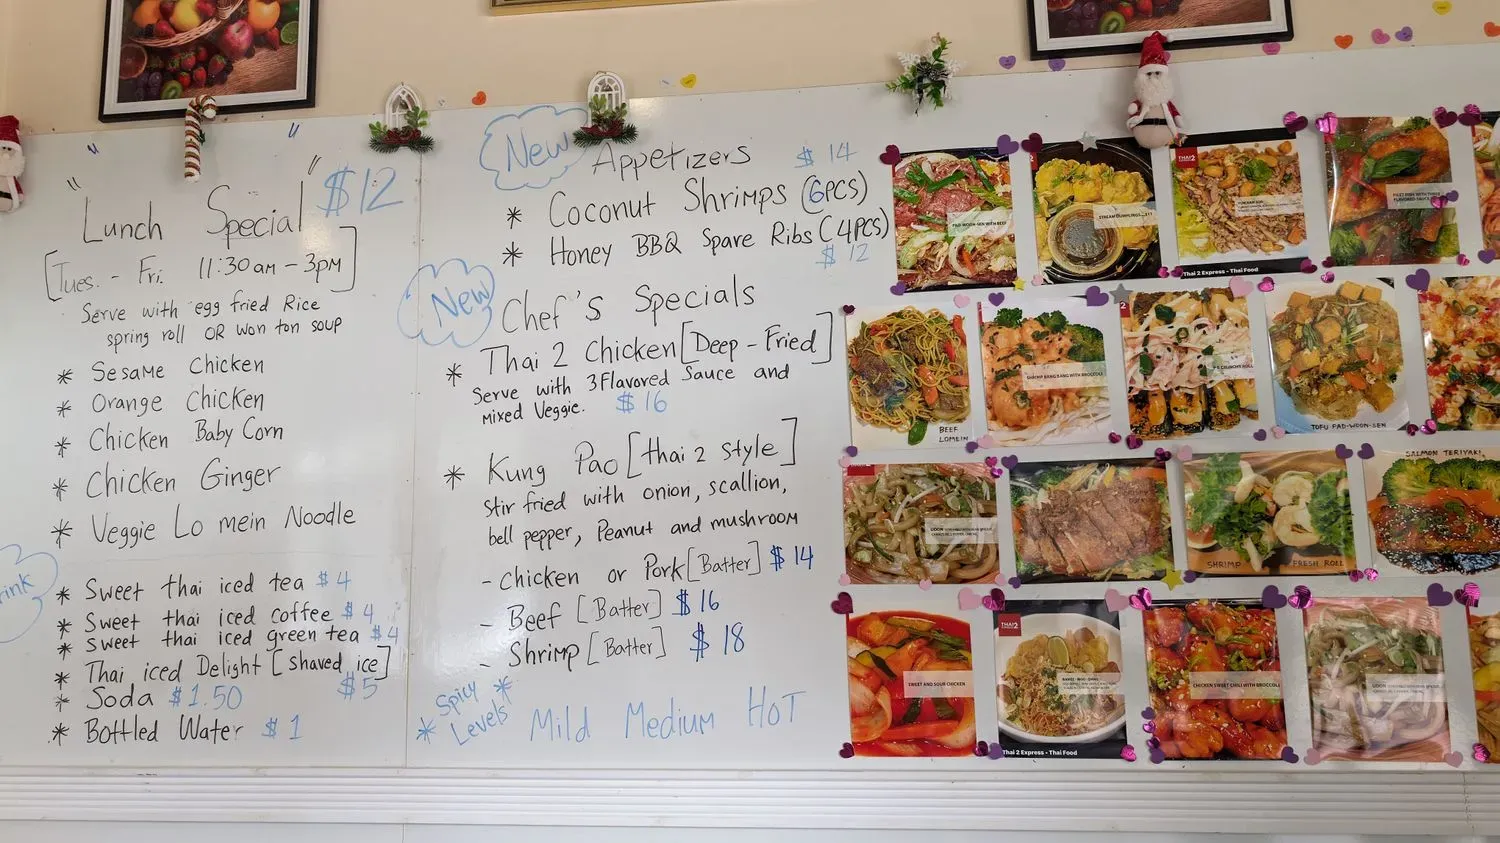 " Lunch Special " $12
[Tues. - Fri. 11:30am - 3pm]
Serve with egg fried Rice
spring roll OR won ton soup
* Sesame Chicken
* Orange Chicken
* Chicken Baby Corn
* Chicken Ginger
* Veggie Lo mein Noodle
rink
* Sweet thai iced tea $4
* Sweet thai iced coffee $4
* Sweet thai iced green tea $4
* Thai iced Delight [shaved ice]
$5
* Soda $1.50
* Bottled Water $1
New
Appetizers $14
* Coconut Shrimps (6PCS)
* Honey BBQ Spare Ribs (4PCS)
$12
New
Chef's Specials
* Thai 2 Chicken [Deep-Fried]
Serve with 3Flavored Sauce and
mixed Veggie. $16
* Kung Pao [thai 2 style]
Stir fried with onion, scallion,
bell pepper, Peanut and mushroom
- Chicken or Pork [Batter] $14
- Beef [Batter] $16
- Shrimp [Batter] $18
* Spicy *
Levels
Mild Medium HOT
PAD-WOON-SEN WITH BEEF
STEAM DUMPLINGS
THAI2
Thai 2 Express - Thai Food
FILET FISH WITH THREE
FLAVORED SAUCE
BEEF
LOMEIN
SHRIMP BANG BANG WITH BROCCOLI
CRUNCHY ROLL
TOFU PAD-WOON-SEN
UDON
SHRIMP FRESH ROLL
SALMON TERIYAKI
SWEET AND SOUR CHICKEN
THAI2
Thai 2 Express - Thai Food
CHICKEN SWEET CHILI WITH BROCCOLI
UDON